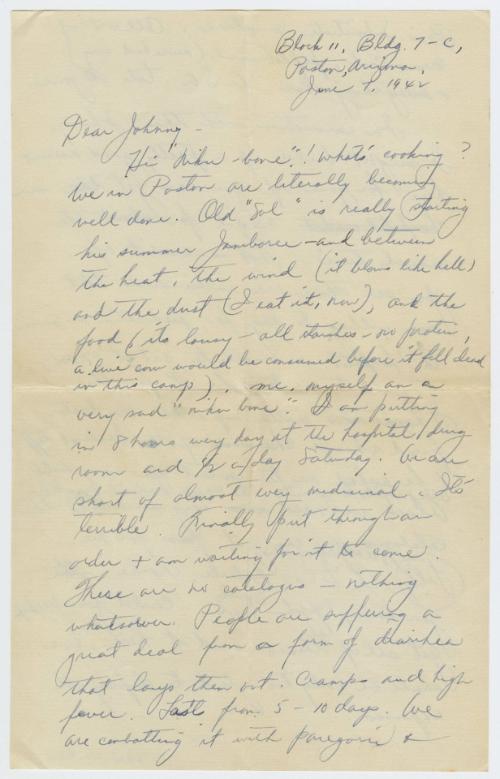 Block 11, Bldg. 7-C,
Poston, Arizona.
June 7, 1942
Dear Johnny -
Hi "Niku-bone"! what's cooking?
We in Poston are literally becoming
well done. Old "Sol" is really starting
his summer Jamboree - and between
the heat, the wind (it blows like hell)
and the dust (I eat it, now), and the
food (its lousy - all starches - no protein,
a live cow would be consumed before it fell dead
in this camp), me, myself am a
very sad "niku bone". I am putting
in 8 hours every day at the hospital drug
room and 1/2 a day Saturday. We are
short of almost every medicinal. It's
terrible. Finally put through an
order + am waiting for it to come.
There are no catalogus - nothing
whatsoever. People are suffering a
great deal from a form of diarrhea
that lays them out. Cramps and high
fever. Lasts from 5 - 10 days. We
are combatting it with paregoric &